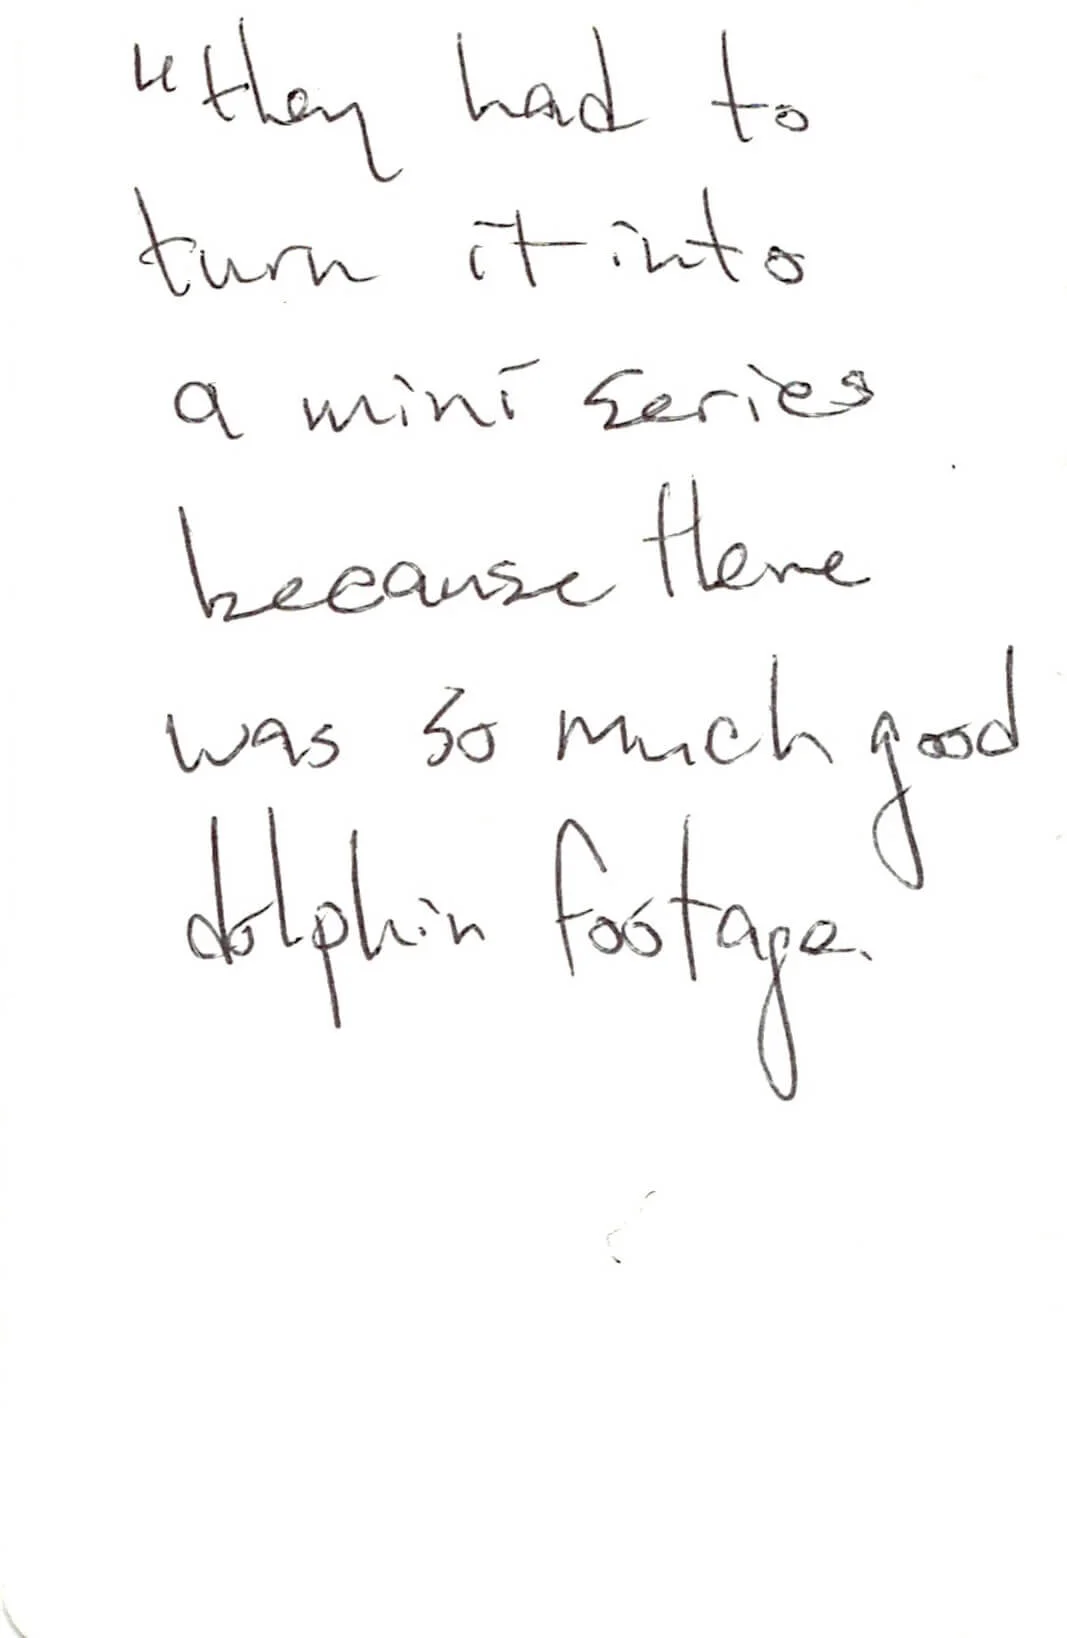 "they had to
turn it into
a mini series
because there
was so much good
dolphin footage.